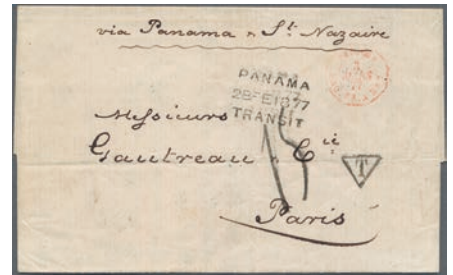 via Panama & St. Nazaire
PANAMA
28FE1877
TRANSIT
Messieurs
Gautreau & Cie
T
Paris